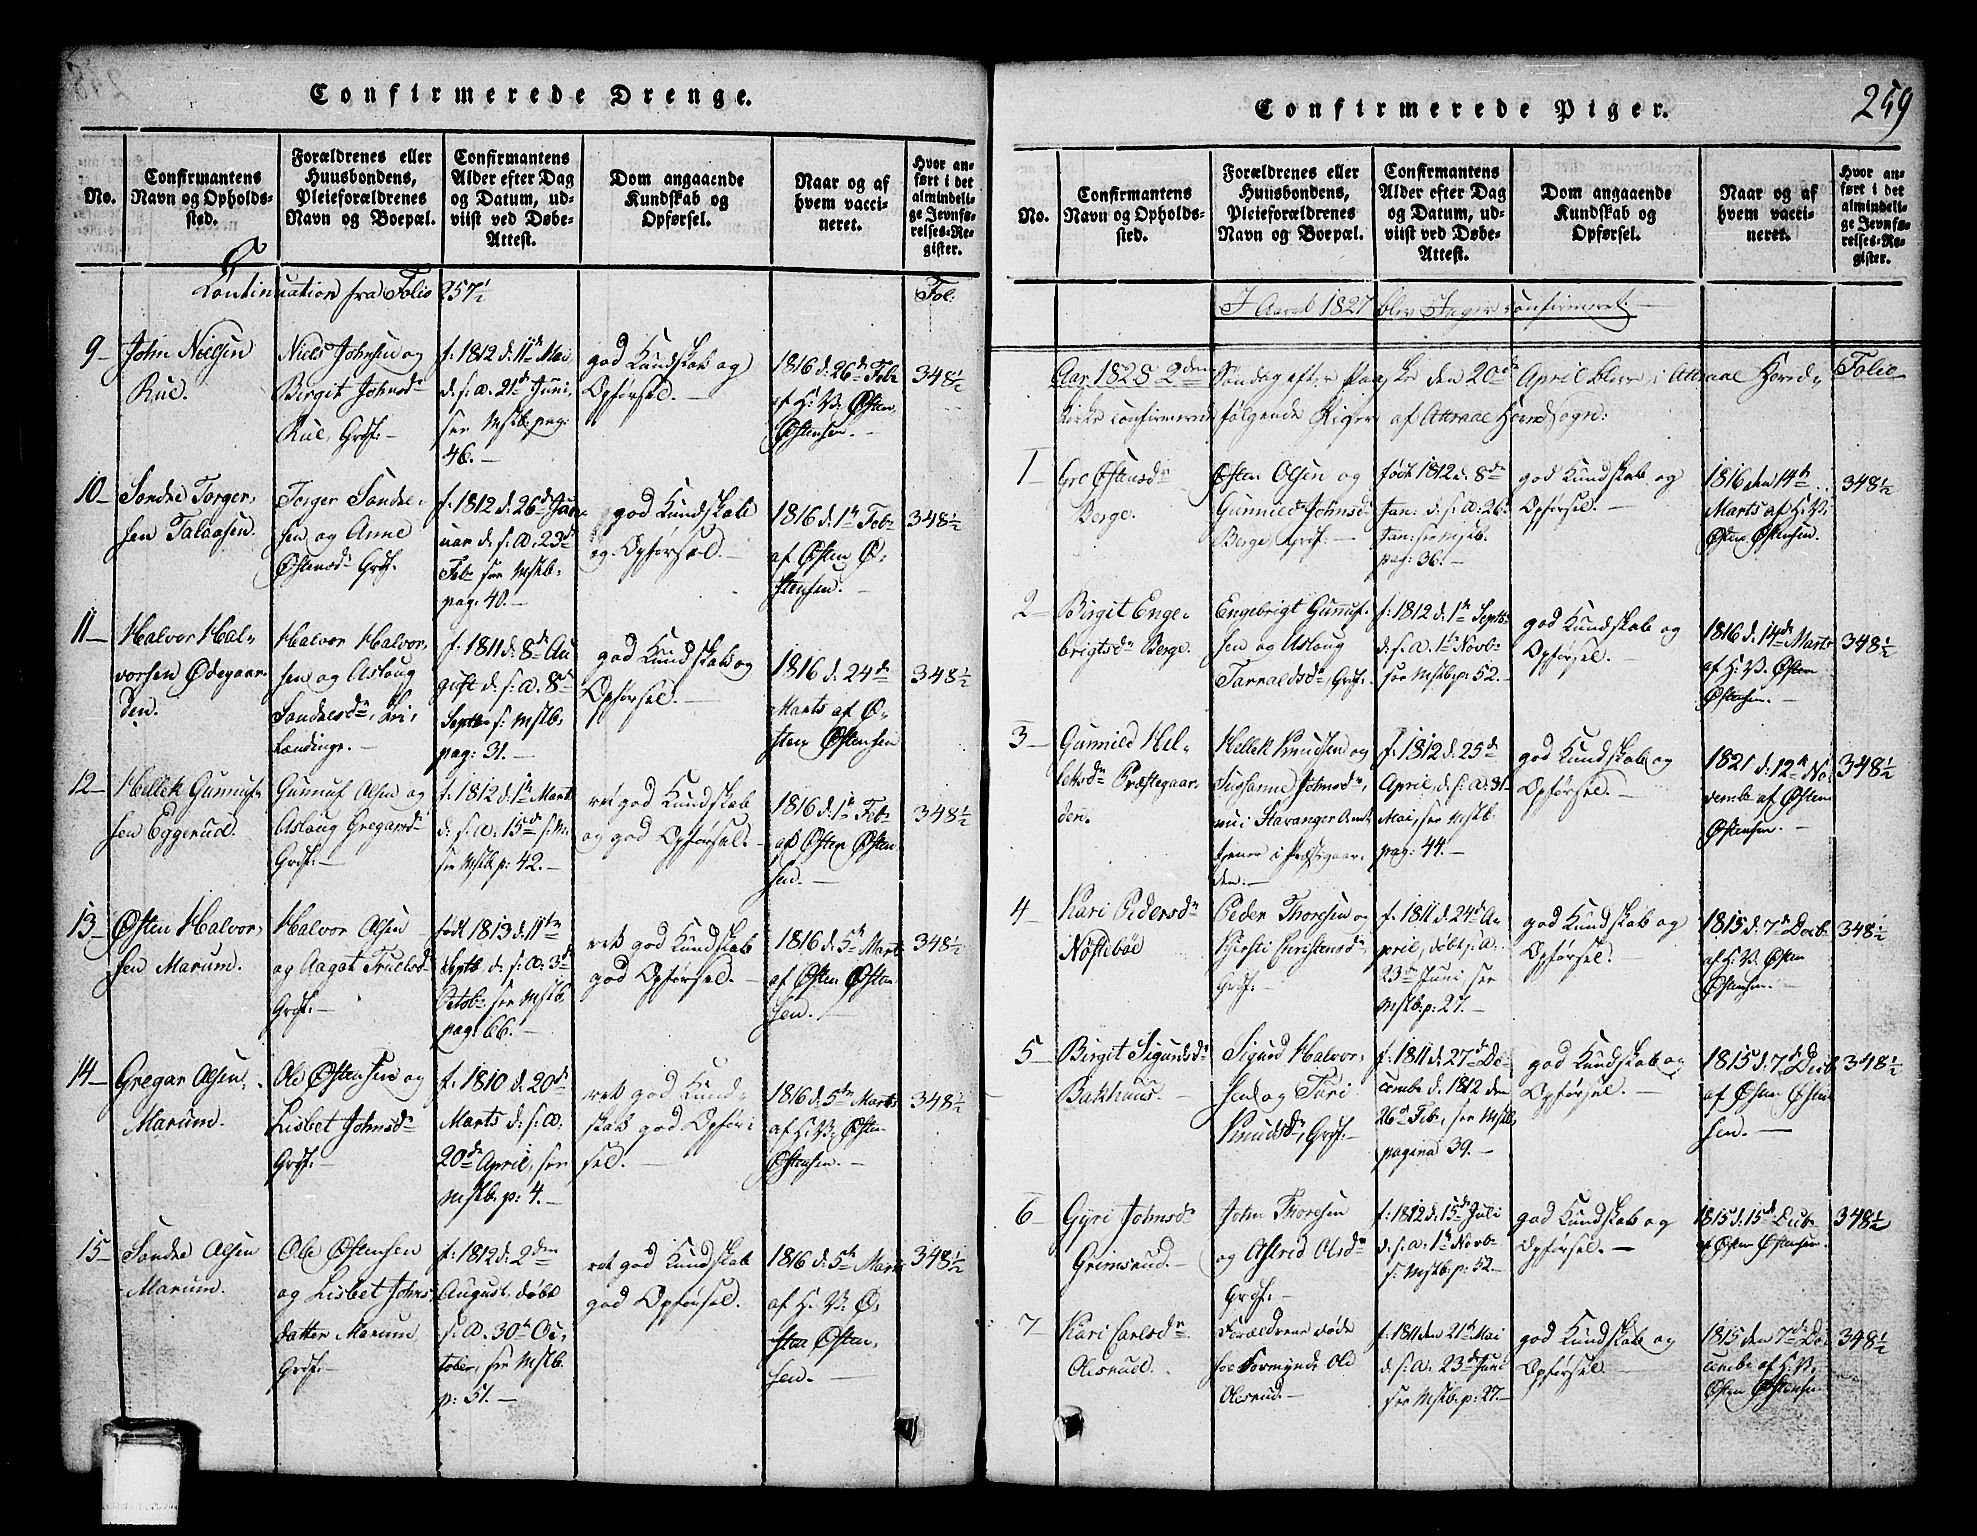 Confirmerede Drenge.
No.
Confirmantens
Navn og Opholds-
sted.
Forældrenes eller
Huusbondens,
Pleieforældrenes
Navn og Boepæl.
Confirmantens
Alder efter Dag
og Datum, ud-
viist ved Døbe-
Attest.
Dom angaaende
Kundskab og
Opførsel.
Naar og af
hvem vacci-
neret.
Hvor an-
ført i det
almindeli-
ge Jevnfø-
relses-Re-
gister.
Continuation fra Folio 257½
Fol.
9
John Nielsen
Rue.
Niels Johnsen og
Birgit Johnsdr
Rue, Grdf.
f. 1812 d. 11te Mai
d. s. a. 21de Juni,
see Mstb. pag.
46.
god Kundskab og
Opførsel.
1816 d. 26de Feb
af H. V. Østen
Østensen.
348½
10
Sondre Torger-
sen Talaasen.
Torger Sondre-
sen og Anne
Østensdr Grdf.
f. 1812 d. 26de Jan-
uar d. s. a. 23de
Feb see Mstb.
pag. 40.
god Kundskab
og Opførsel.
1816 d. 1te Feb
af Østen Ø-
stensen.
348½
11
Halvor Hal-
vorsen Ødegaar-
den.
Halvor Halvor-
sen og Aslaug
Sondresdr,
Lændinge.
f. 1811 d. 8de Au-
gust d. s. a. 8de
Septb s. Mstb.
pag: 31.
god Kundskab og
Opførsel.
1816 d. 24de
Marts af Ø-
sten Østensen
348½
12
Hellek Gunnuf-
sen Eggerud.
Gunnuf Olsen og
Aslaug Gregarsdr
Grdf.
f. 1812 d. 1te Marts
d. s. a. 15de s. M.
see Mstb. p: 42.
ret god Kundskab
og god Opførsel.
1816 d. 1te Feb
af Østen Østen-
sen.
348½
13
Østen Halvor-
sen Marum.
Halvor Olsen
og Aagot Truelsdr
Grdf.
født 1813 d. 11te
Septb d. s. a. 3de
Octob see Mstb.
pag: 66.
ret god Kundskab
god Opførsel.
1816 d. 5te Marts
af Østen Østen-
sen.
348½
14
Gregar Olsen
Marum.
Ole Østensen og
Lisbet Johnsdr
Grdf.
f. 1810 d. 20de
Marts d. s. a.
20de April, see
Mstb. p: 4.
ret god Kund-
skab god Opfør-
sel.
1816 d. 5te Marts
af H. V. Østen
Østensen.
348½
15
Sondre Olsen
Marum.
Ole Østensen
og Lisbet Johns-
datter Marum
Grdf.
f. 1812 d. 2den
August, døbt
s. a. 30te Oc-
tober, see Mstb.
p: 51.
ret god Kundskab
god Opførsel.
1816 d. 5te Marts
af H. V. Ø-
sten Østen-
sen.
348½
Confirmerede Piger.
259
No.
Confirmantens
Navn og Opholds-
sted.
Forældrenes eller
Huusbondens,
Pleieforældrenes
Navn og Boepæl.
Confirmantens
Alder efter Dag
og Datum, ud-
viist ved Døbe-
Attest.
Dom angaaende
Kundskab og
Opførsel.
Naar og af
hvem vacci-
neret.
Hvor an-
ført i det
almindeli-
ge Jevnfø-
relses-Re-
gister.
I Aaret 1827 blev Ingen confirmeret.
Aar 1828 2den Søndag efter Paaske den 20de April blev i Attraae Hoved-
Folio
Kirke confirmerede følgende Piger af Attraae Hovedsogn:
1
Gro Østensdr
Berge.
Østen Olsen og
Gunnild Johnsdr
Berge, Grdf.
født 1812 d. 8de
Jan: d. s. a. 26
Jan: see Mstb.
pag: 36.
god Kundskab og
Opførsel.
1816 den 14de
Marts af H. V.
Østen Østensen.
348½
2
Birgit Enge-
brigtsdr Berge.
Engebrigt Gunnuf-
sen og Aslaug
Tarraldsdr, Grdf.
f. 1812 d. 1te Septb
d. s. a. 1te Novb
see Mstb. p: 52.
god Kundskab og
Opførsel.
1816 d. 14de Marts
af H. V. Østen
Østensen.
348½
3
Gunnild Hel-
leksdr Præstegaar-
den.
Hellek Knudsen og
Susanne Johnsdr,
nu i Stavanger Amt
tjener i Præstegaar-
den.
f. 1812 d. 25de
April, d. s. a. 31
Mai, see Mstb.
pag: 44.
god Kundskab og
Opførsel.
1821 d. 12te No-
vemb af Østen
Østensen.
348½
4
Kari Pedersdr
Nøstebøe
Peder Thoresen og
Kirsti Christensdr
Grdf.
f. 1811 d. 24de A-
pril, døbt s. a.
23de Juni see
Mstb. p: 27.
god Kundskab og
Opførsel.
1815 d. 7de Decb
af H. V. Østen
Østensen.
348½
5
Birgit Sigurdsdr
Bakhuus.
Sigurd Halvor-
sen og Turi
Knudsdr, Grdf.
f. 1811 d. 27de De-
cembr d. 1812 den
26de Feb, see Mstb.
pagina 39.
god Kundskab og
Opførsel.
1815 d. 7de Decb
af Østen Østen-
sen.
348½
6
Gyri Johnsdr
Grimsrud.
John Thoresen
og Astrid Olsdr
Grdf.
f. 1812 d. 15de Juli
d. s. a. 1te Novb
s. Mstb. p: 52.
god Kundskab og
Opførsel.
1815 d. 15de Decb
af Østen Østensen.
348½
7
Kari Carlsdr
Olisrud.
Forældrene døde
hos Formynder Ole
Olisrud.
f. 1811 den 21de Mai
d. s. a. 23de Juni
see Mstb. p: 27.
god Kundskab og
Opførsel.
1815 den 7de De-
cembr af H. V.
Østen Østensen
348½